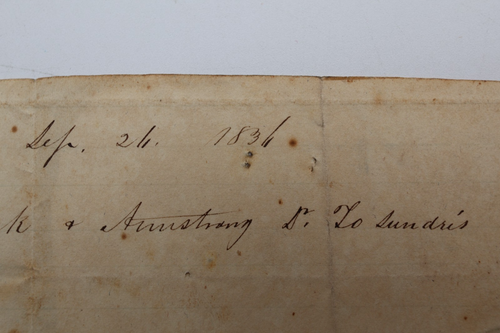 Sep. 26. 1836
k & Armstrong Dr. To Sundries